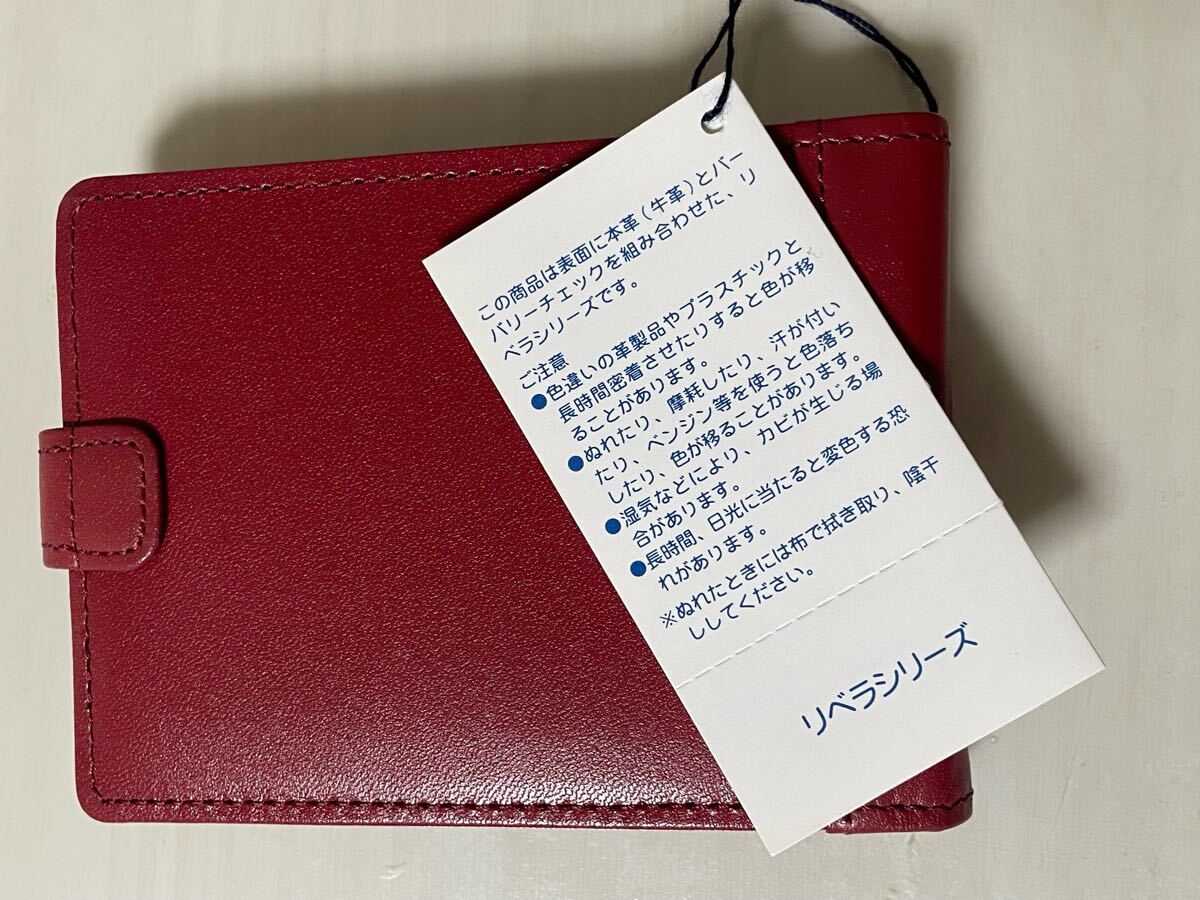 この商品は表面に本革(牛革)とバー
バリーチェックを組み合わせた、リ
ベラシリーズです。
ご注意
●色違いの革製品やプラスチックと
長時間密着させたりすると色が移
ることがあります。
●ぬれたり、摩耗したり、汗が付い
たり、ベンジン等を使うと色落ち
したり、色が移ることがあります。
●湿気などにより、カビが生じる場
合があります。
●長時間、日光に当たると変色する恐
れがあります。
※ぬれたときには布で拭き取り、陰干
ししてください。
リベラシリーズ